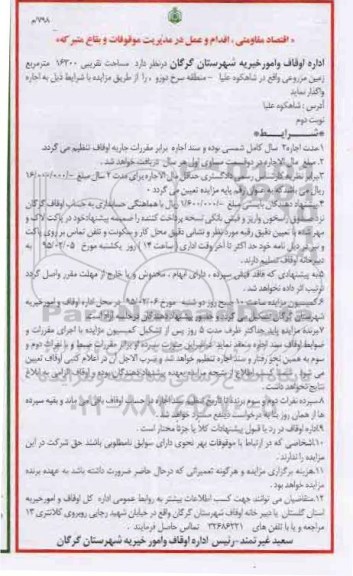 ۷۹۸/م
« اقتصاد مقاومتی ، اقدام و عمل در مدیریت موقوفات و بقاع متبرکه»
اداره اوقاف وامورخیریه شهرستان گرگان درنظر دارد مساحت تقریبی ۱۶۳۰۰ مترمربع
زمین مزروعی واقع در شاهکوه علیا - منطقه سرخ دوزو ، را از طریق مزایده با شرایط ذیل به اجاره
واگذار نماید
آدرس : شاهکوه علیا
نوبت دوم
*شــرایــط*
۱-مدت اجاره ۲ سال کامل شمسی بوده و سند اجاره برابر مقررات جاریه اوقاف تنظیم می گردد.
۲-مبلغ مال الاجاره در دوقسمت مساوی اول هر سال دریافت خواهد شد .
۳-برابر نظریه کارشناس رسمی دادگستری حداقل مال الاجاره برای مدت ۲ سال مبلغ
ریال می باشد که به عنوان رقم پایه مزایده تعیین می گردد
۴-پیشنهاد دهندگان بایستی مبلغ ۱/۶۰۰/۰۰۰ ریال با هماهنگی حسابداری به حساب اوقاف گرگان
نزد صندوق رسالت واریز و فیش بانکی نسخه پرداخت کننده را ضمیمه پیشنهاد خود در پاکت لاک و
مهر شده با تعیین دقیق رقبه مورد نظر و نشانی دقیق محل کار و سکونت و تلفن تماس بر روی پاکت
و نیز در ذیل نامه خود حد اکثر تا آخر وقت اداری ( ساعت ۱۴ ) روز یکشنبه مورخ ۹۵/۰۲/۰۵ به
دبیرخانه اوقاف تسلیم دارند.
۵-به پیشنهادی که فاقد فیش سپرده ، دارای ابهام ، مخدوش و یا خارج از مهلت مقرر واصل گردد
ترتیب اثر داده نخواهد شد.
۶-کمیسیون مزایده ساعت ۱۰ صبح روز دو شنبه مورخ ۹۵/۰۲/۰۶ در محل اداره اوقاف و امورخیریه
شهرستان گرگان تشکیل می گردد
۷-برنده مزایده باید حداکثر ظرف مدت ۵ روز پس از تشکیل کمیسیون مزایده با اجرای مقررات و
ضوابط اوقاف سند اجاره منعقد نماید درغیراین صورت سپرده او برابر مقررات ضبط و با نفرات دوم و
سوم به همین نحو رفتار و سند اجاره تنظیم خواهد شد و ضرب الاجل آن در اعلام کتبی اوقاف تعیین
می شود ضمنا کسب اطلاع از نتیجه مزایده به عهده پیشنهاد دهندگان بوده و اوقاف الزامی به ابلاغ
نتایج نخواهد داشت.
۸-سپرده نفرات دوم و سوم برنده تا تاریخ تنظیم سند اجاره در حساب اوقاف باقی می ماند و بقیه سپرده
ها از همان روز یا به درخواست ذینفع مسترد خواهد شد.
۹-اداره اوقاف در رد یا قبول پیشنهادات کلا یا جزئا مختار است .
۱۰-اشخاصی که در ارتباط با موقوفات بهر نحوی دارای سوابق نامطلوبی باشند حق شرکت در این
مزایده را ندارند.
۱۱-هزینه برگزاری مزایده و هرگونه تعمیراتی که درحال حاضر ضرورت داشته باشد به عهده برنده
مزایده خواهد بود .
۱۲-متقاضیان می توانند جهت کسب اطلاعات بیشتر به روابط عمومی اداره کل اوقاف و امورخیریه
استان گلستان یا دبیر خانه اوقاف شهرستان گرگان واقع در خیابان شهید رجایی روبروی کلانتری ۱۳
مراجعه و یا با تلفن های ۳۲۶۸۶۲۲۱ تماس حاصل فرمایند .
سعید غیرتمند-رئیس اداره اوقاف وامور خیریه شهرستان گرگان